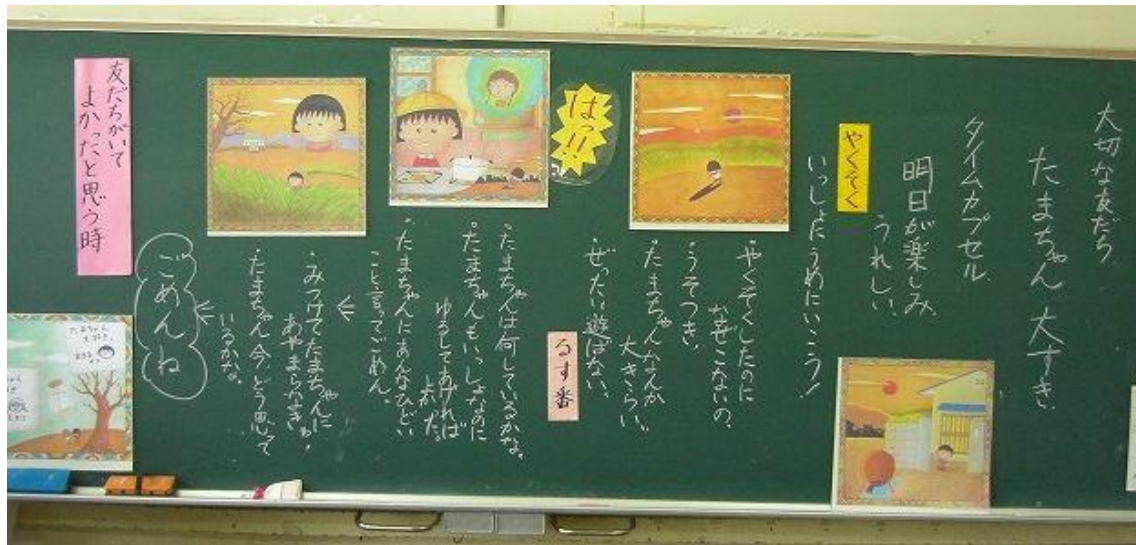 大切な友だち
たまちゃん 大すき
タイムカプセル
明日が楽しみ
うれしい
やくそく
いっしょにうめにいこう!
・やくそくしたのに
なぜこないの。
・うそつき。
・たまちゃんなんか
大きらい。
・ぜったい遊ばない。
はっ!!
るす番
・たまちゃんは何しているかな。
・たまちゃんもいっしょなのに
ゆるしてあげれば
よかった。
・たまちゃんにあんなひどい
こと言ってごめん。
・みつけてたまちゃんに
あやまらなきゃ。
・たまちゃん今、どう思って
いるかな。
ごめんね
友だちがいて
よかったと思う時
たまちゃん